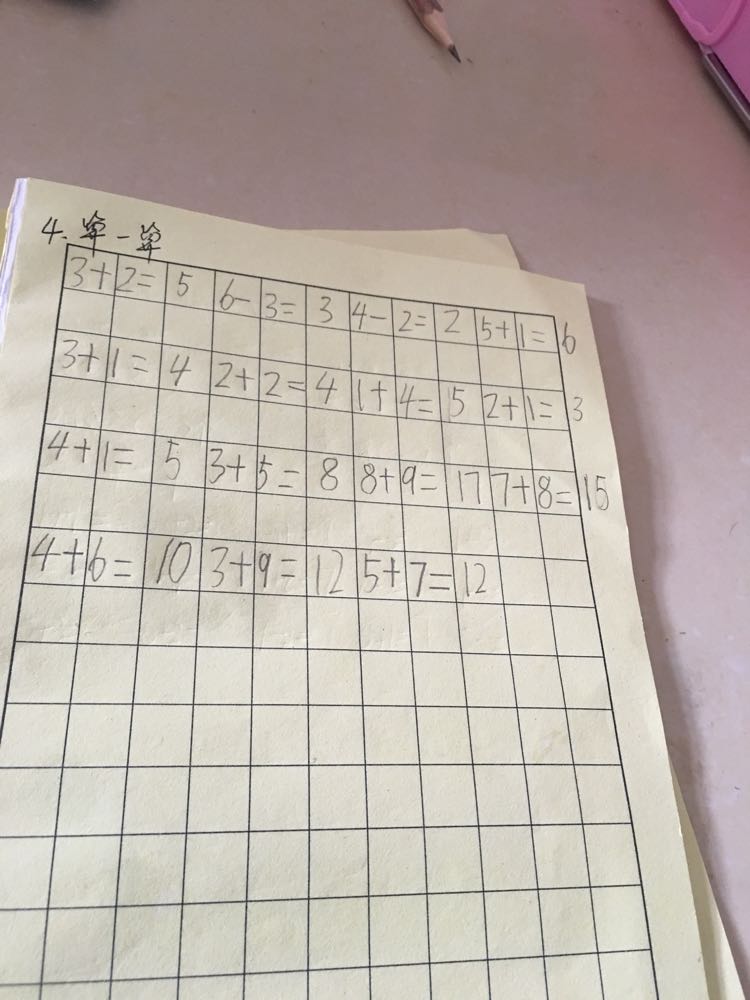 4.算一算
3+2=5 6-3=3 4-2=2 5+1=6
3+1=4 2+2=4 1+4=5 2+1=3
4+1=5 3+5=8 8+9=17 7+8=15
4+6=10 3+9=12 5+7=12